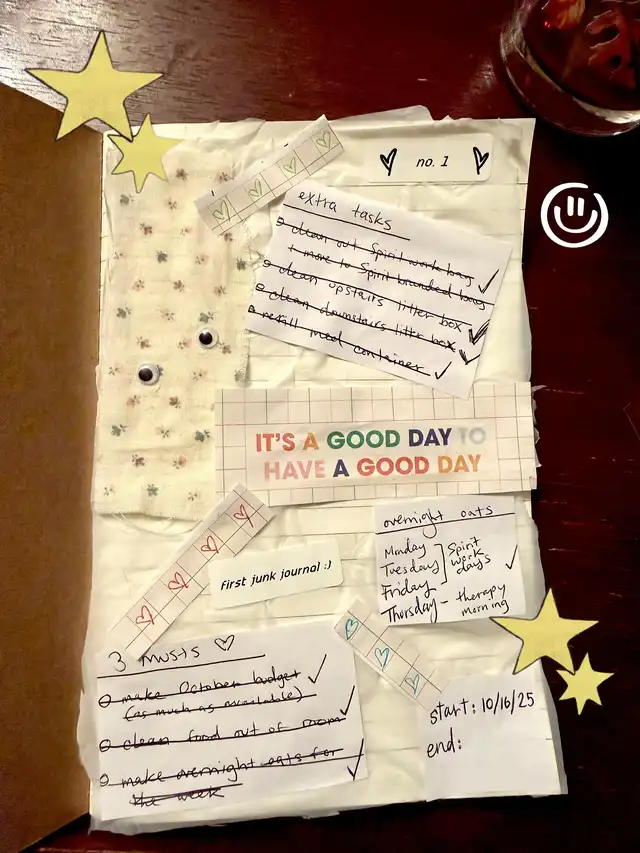 no. 1
extra tasks
clean out Spirit work bag
+ move to Spirit branded bag
clean upstairs litter box
clean downstairs litter box
refill med container
IT'S A GOOD DAY TO
HAVE A GOOD DAY
overnight oats
Monday
Tuesday
Friday
Spirit
work
days
Thorsday - therapy
morning
first junk journal :)
3 musts
make October budget
(as much as available)
clean food out of room
make overnight oats for
the week
start: 10/16/25
end: